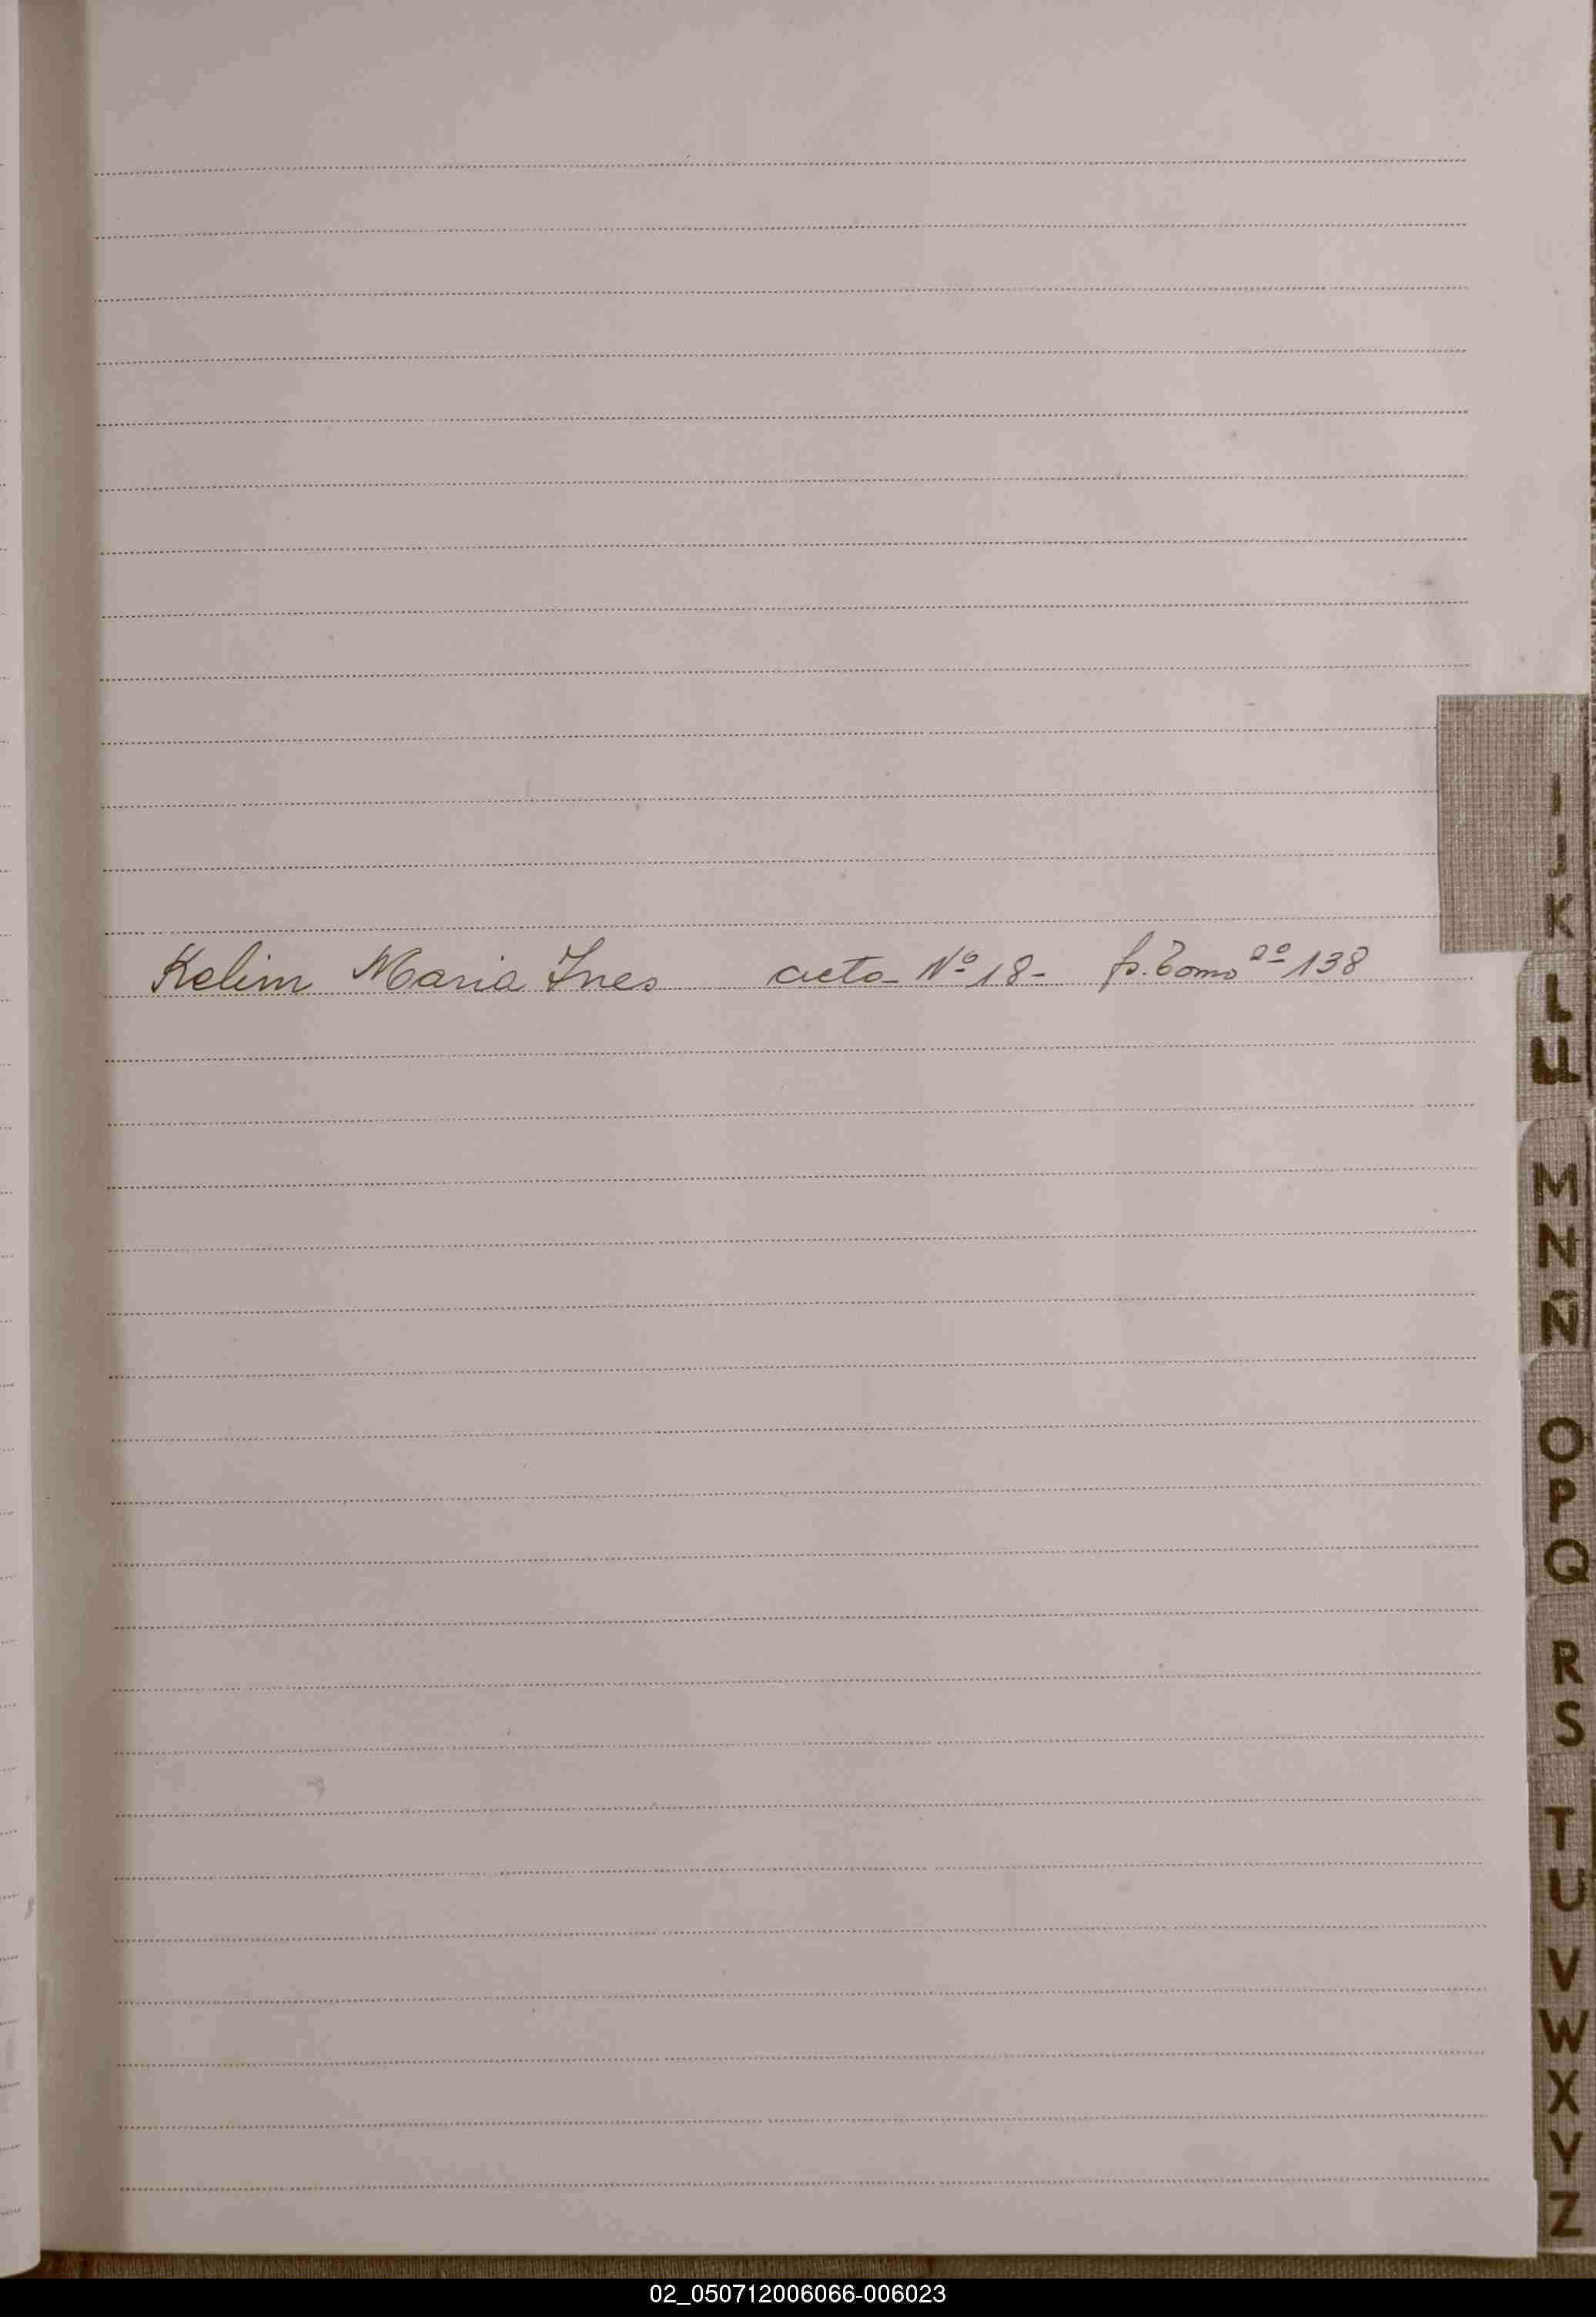 Kelim Maria Ines acta Nº 18- fs. Tomo 2º 138
I
J
K
L
LL
M
N
Ñ
O
P
Q
R
S
T
U
V
W
X
Y
Z
02_050712006066-006023